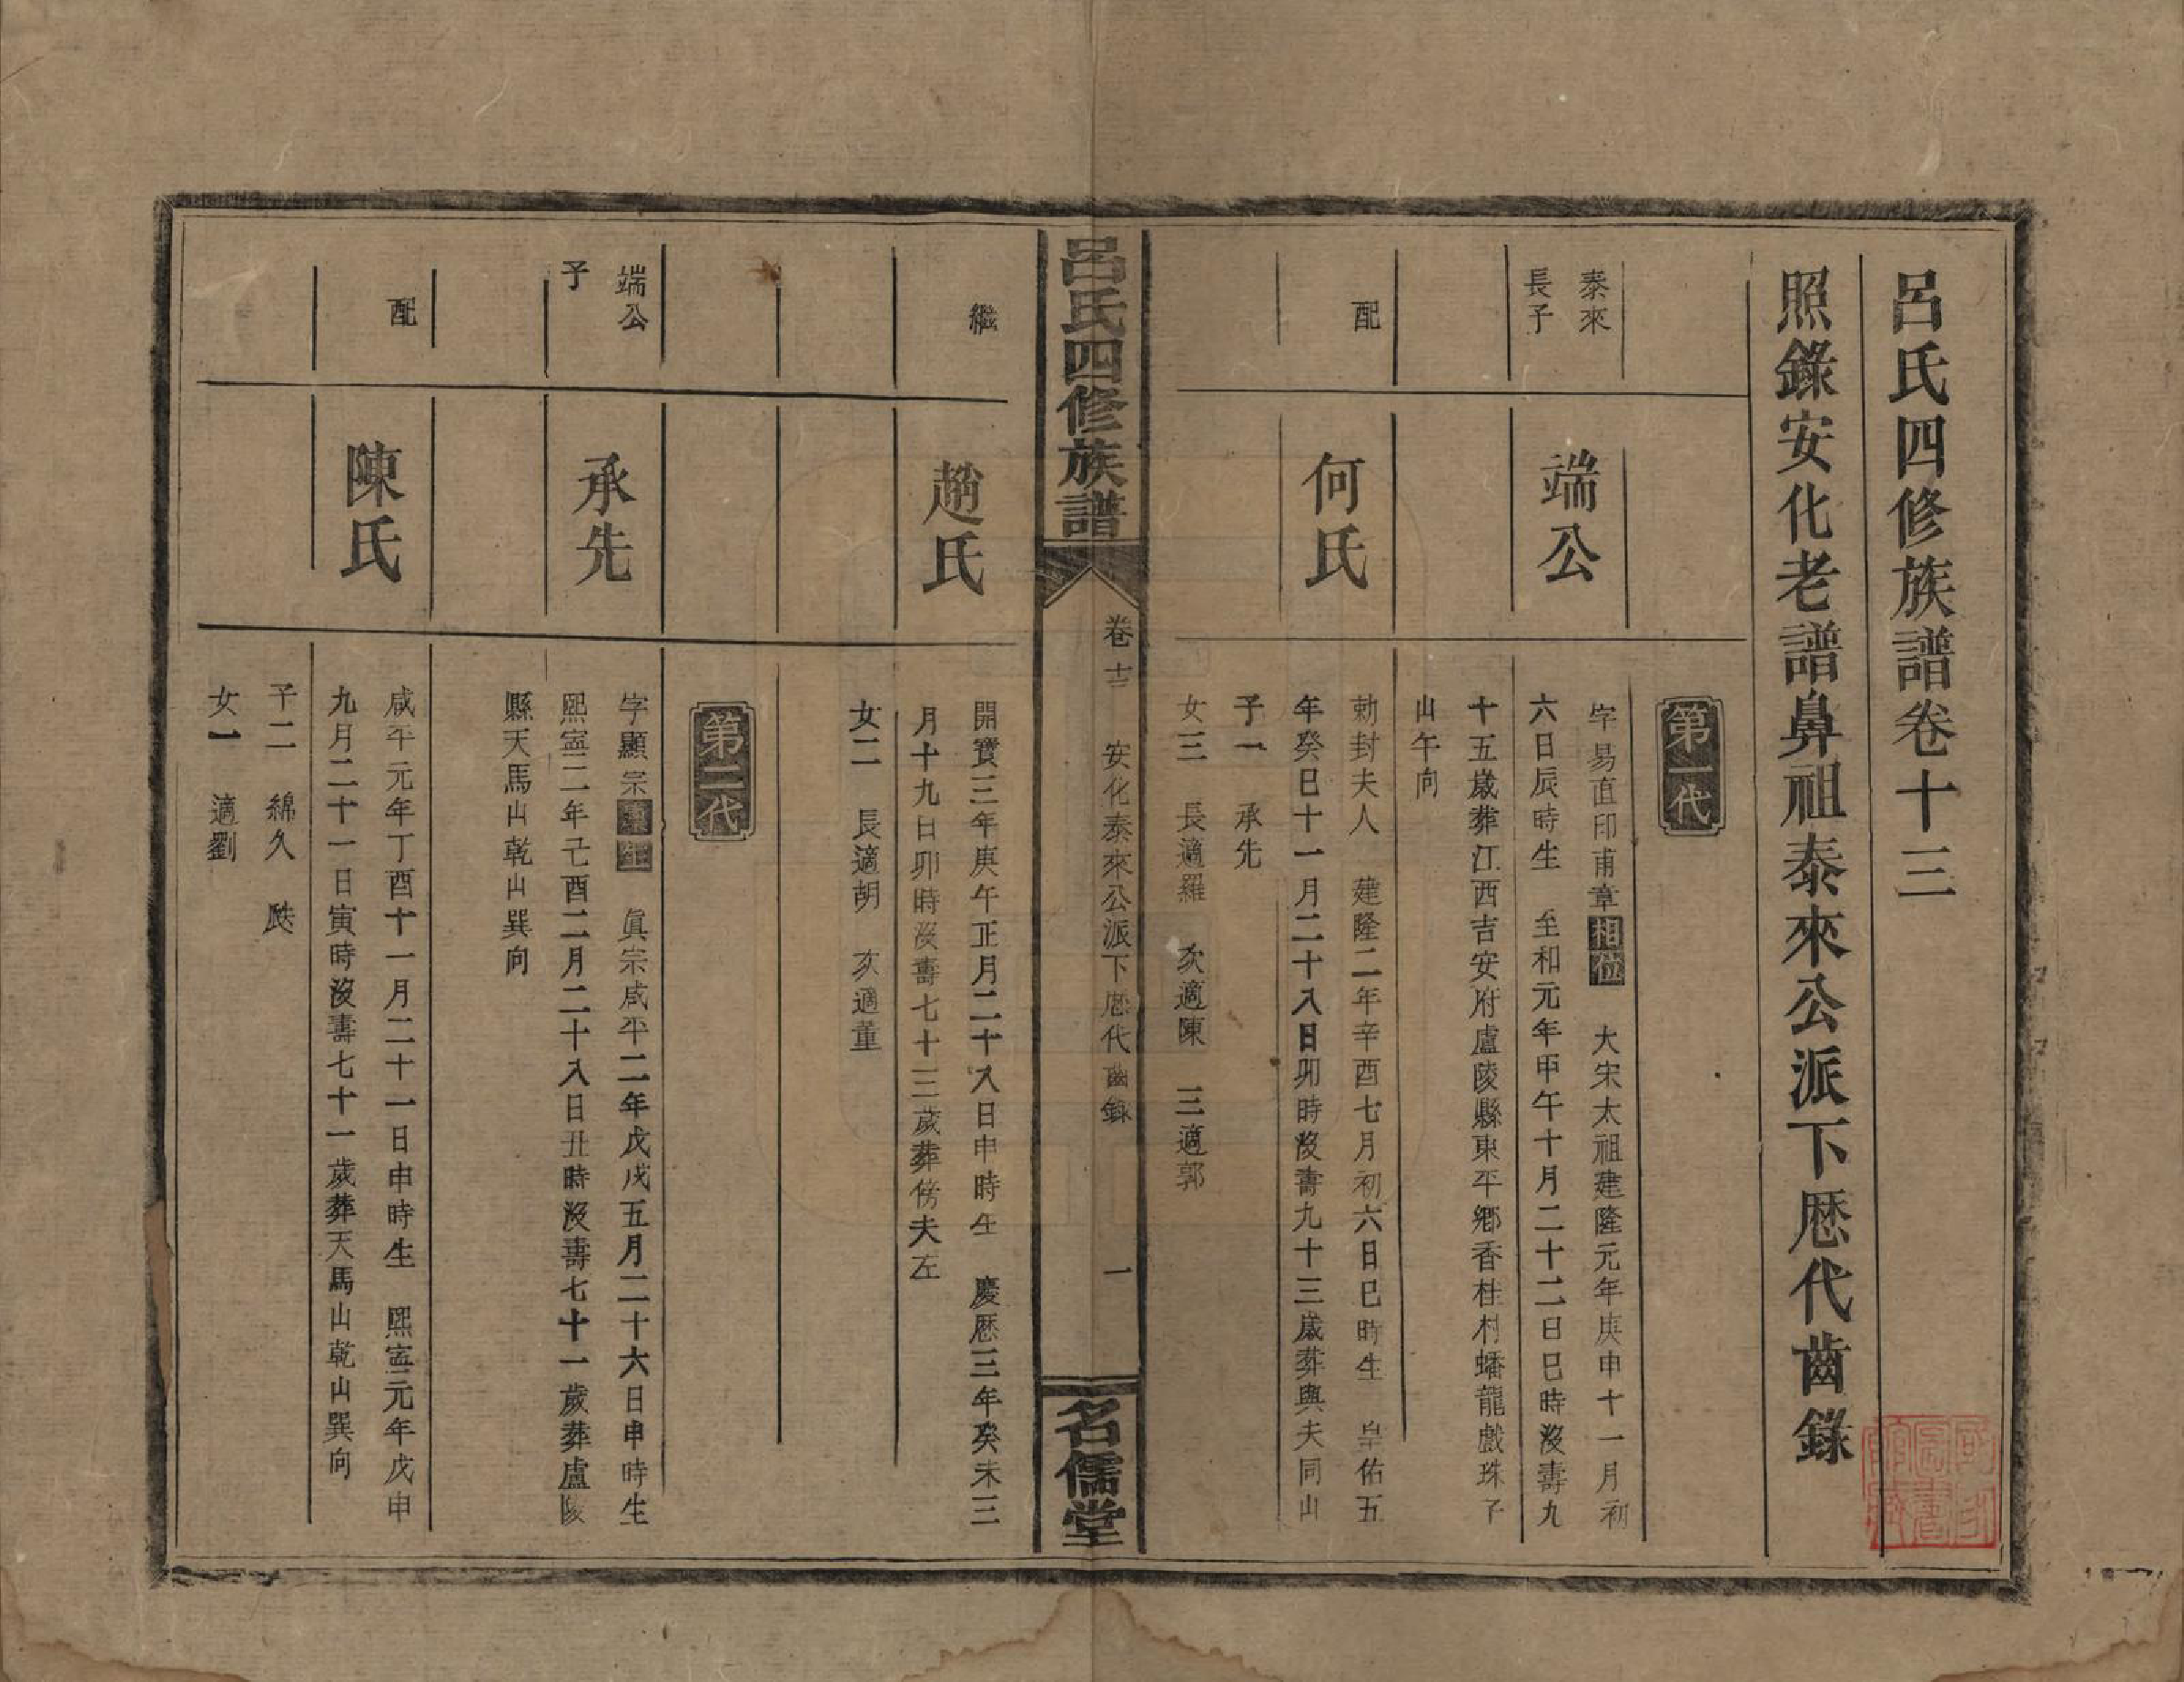 呂氏四修族譜卷十三
照錄安化老譜鼻祖泰來公派下歷代齒錄
第一代
泰來
長子
端公
字易直印甫章相位 大宋太祖建隆元年庚申十一月初
六日辰時生 至和元年甲午十月二十二日巳時沒壽九
十五歲葬江西吉安府盧陵縣東平鄉香桂村蟠龍戲珠子
山午向
配
何氏
勅封夫人 建隆二年辛酉七月初六日巳時生 皇佑五
年癸巳十一月二十八日卯時沒壽九十三歲葬與夫同山
子一 承先
女三 長適羅 次適陳 三適郭
呂氏四修族譜
卷十三 安化泰來公派下歷代齒錄 一
名儒堂
繼
趙氏
開寶三年庚午正月二十八日申時生 慶歷三年癸未三
月十九日卯時沒壽七十三歲葬傍夫左
女二 長適胡 次適董
第二代
端公
子
承先
字顯宗 眞宗咸平二年戊戌五月二十六日申時生
熙寧二年己酉二月二十八日丑時沒壽七十一歲葬盧陵
縣天馬山乾山巽向
配
陳氏
咸平元年丁酉十一月二十一日申時生 熙寧元年戊申
九月二十一日寅時沒壽七十一歲葬天馬山乾山巽向
子二 綿久 瓞
女一 適劉